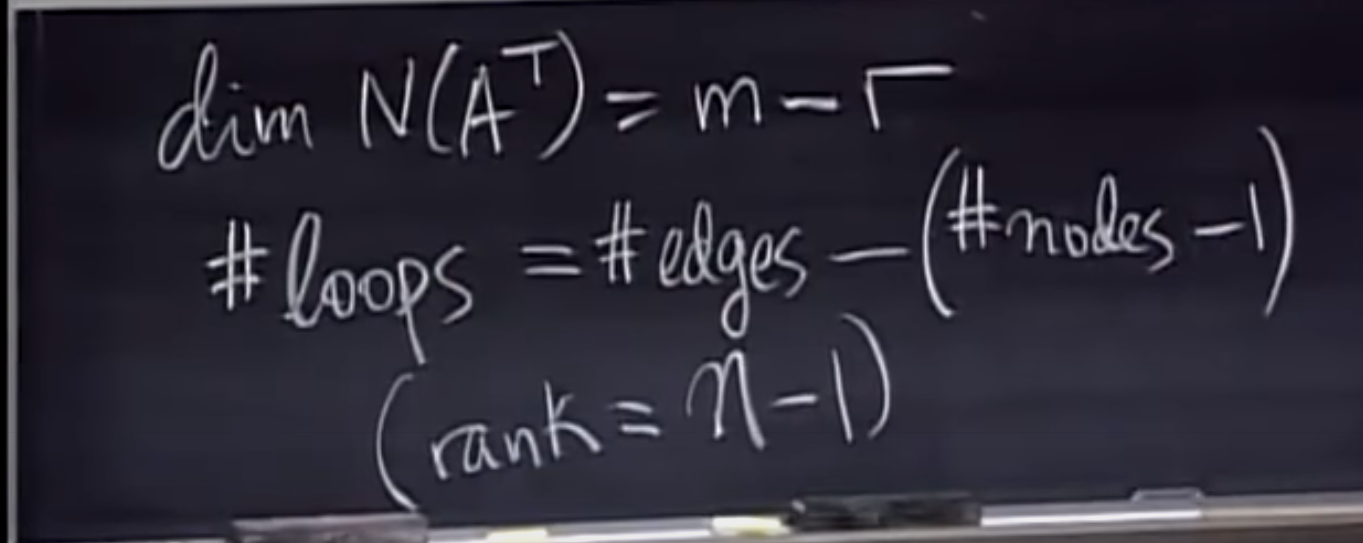 dim N(Aᵀ) = m − r
#loops = #edges − (#nodes − 1)
(rank = n − 1)